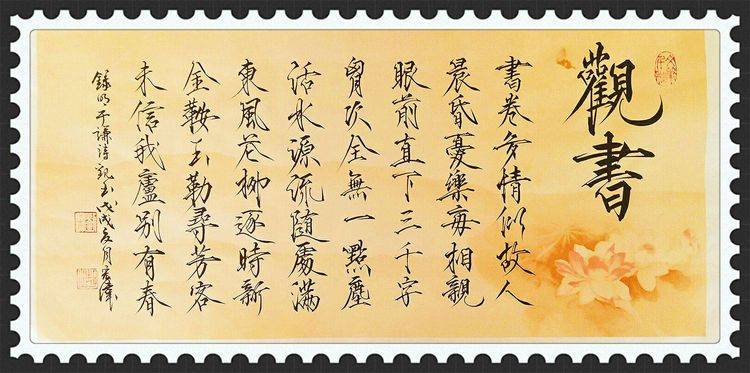 觀書
書卷多情似故人
晨昏憂樂每相親
眼前直下三千字
胷次全無一點塵
活水源流随處滿
東風花柳逐時新
金鞍玉勒尋芳客
未信我廬別有春
錄明于謙詩觀書戊戌夏月宏偉